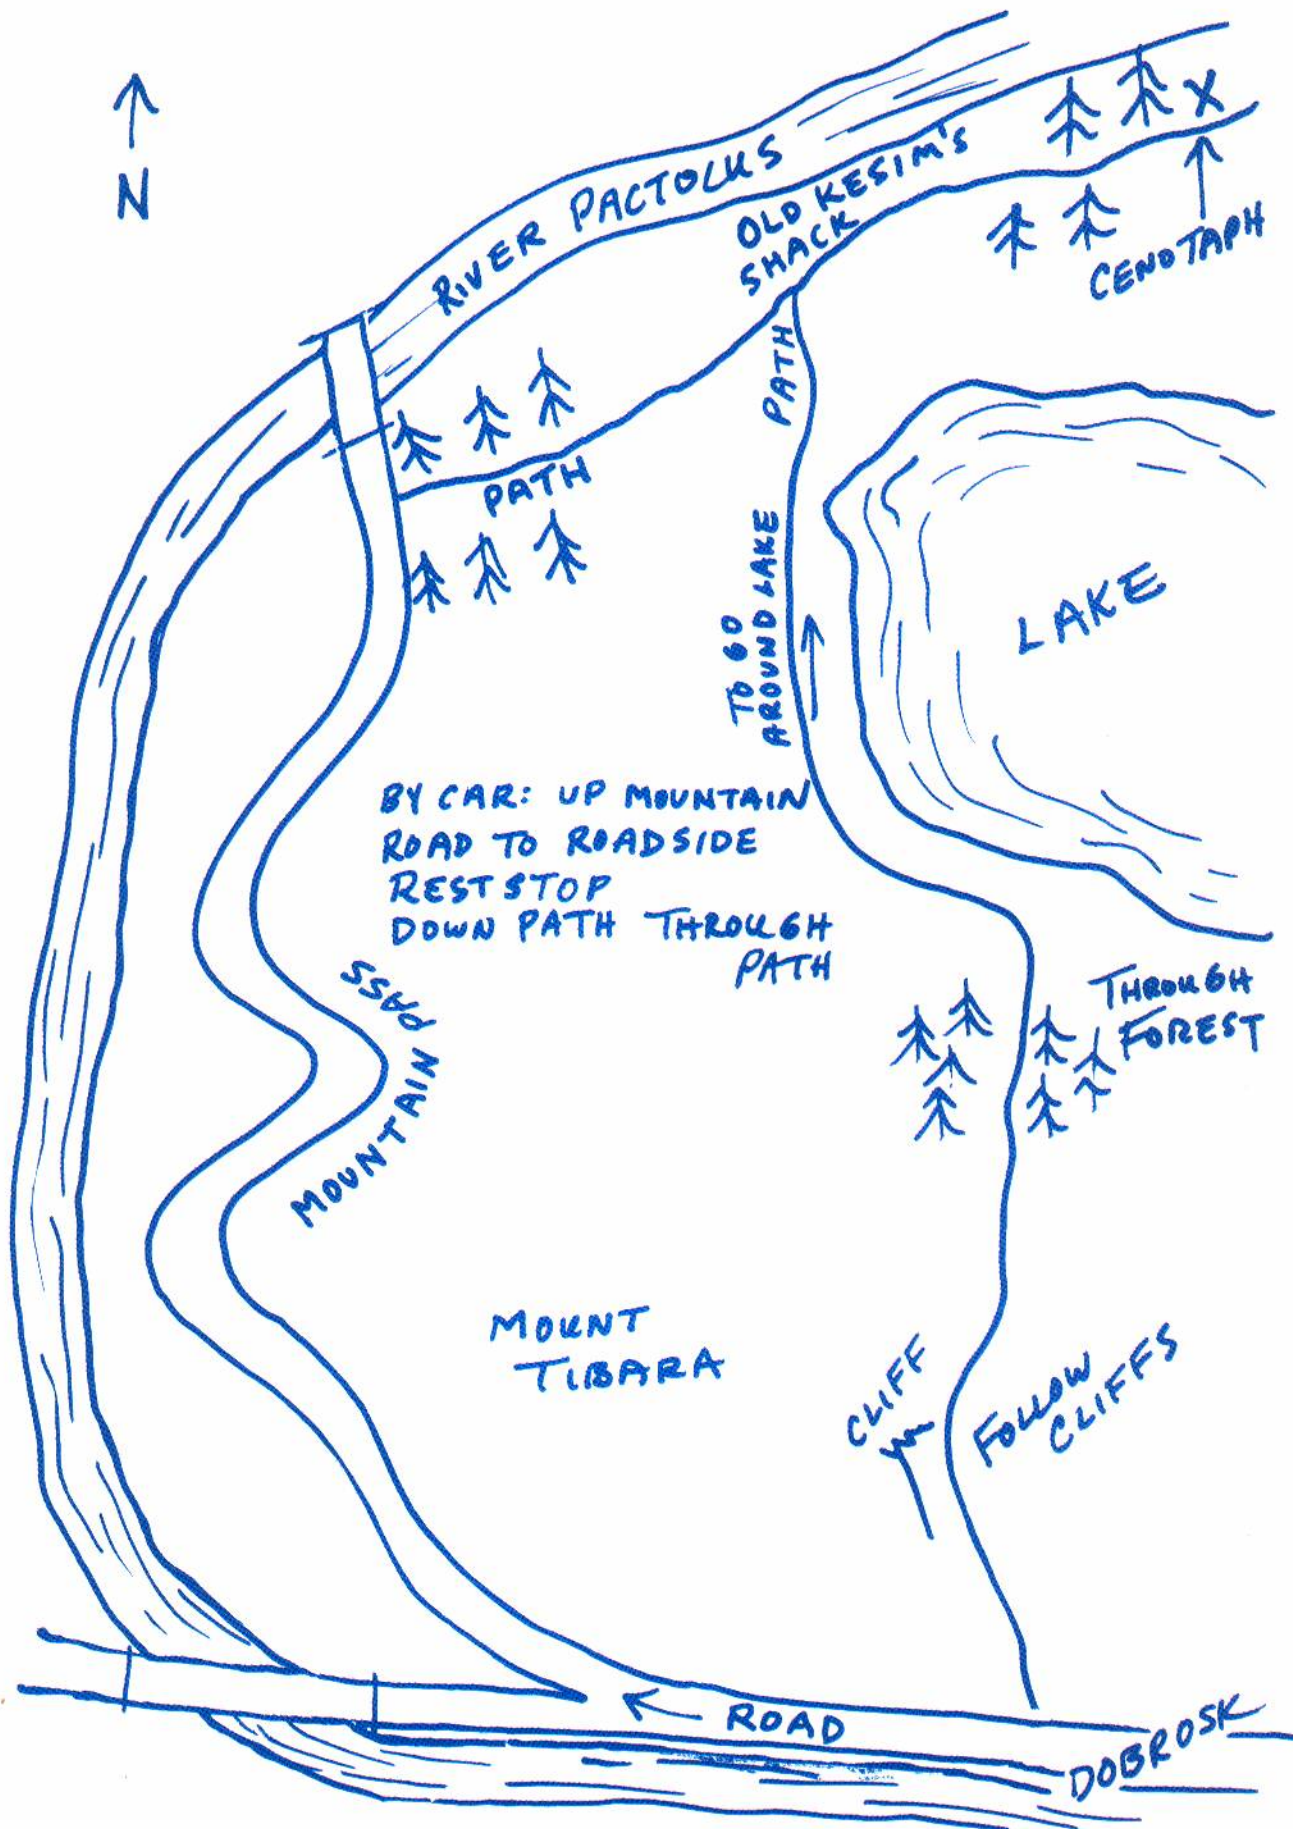 N
RIVER PACTOLUS
OLD KESIM'S
SHACK
X
CENOTAPH
PATH
PATH
TO GO
AROUND LAKE
LAKE
BY CAR: UP MOUNTAIN
ROAD TO ROADSIDE
REST STOP
DOWN PATH THROUGH
PATH
MOUNTAIN PASS
THROUGH
FOREST
MOUNT
TIBARA
CLIFF
FOLLOW
CLIFFS
ROAD
DOBROSK